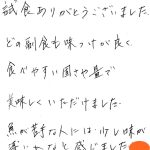 試食ありがとうございました.
どの副食も味つけが良く、
食べやすい固さや量で
美味しくいただけました.
魚が苦手な人には、少し味が
濃いかなと感じました